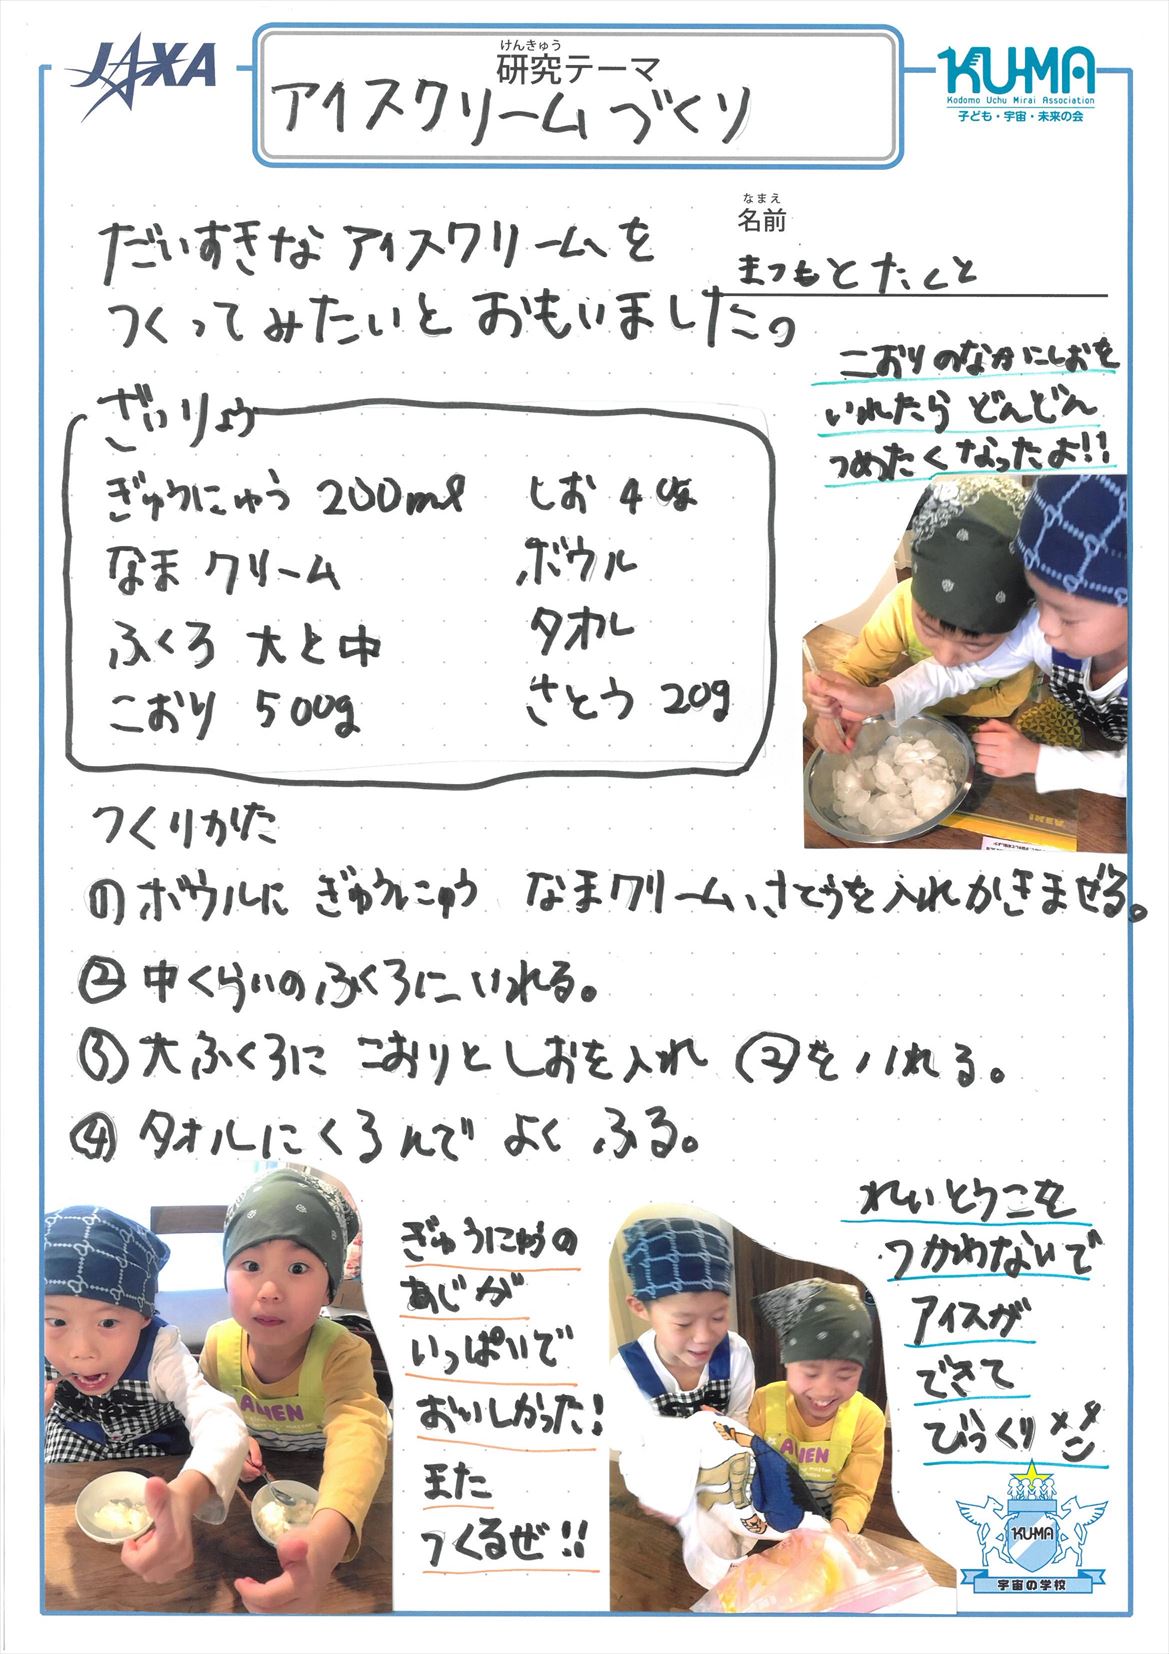 JAXA
けんきゅう
研究テーマ
アイスクリームづくり
KU-MA
Kodomo Uchu Mirai Association
子ども・宇宙・未来の会
なまえ
名前
まつもとたくと
だいすきな アイスクリームを
つくってみたいと おもいました。
こおりのなかにしおを
いれたら どんどん
つめたくなったよ!!
ざいりょう
ぎゅうにゅう 200ml
なまクリーム
ふくろ 大と中
こおり 500g
しお 40g
ボウル
タオル
さとう 20g
つくりかた
①ボウルに ぎゅうにゅう なまクリーム、さとうを入れかきまぜる。
②中くらいのふくろにいれる。
③大ふくろに こおりとしおを入れ ②を入れる。
④タオルにくるんで よく ふる。
IKEA
ぎゅうにゅうの
あじが
いっぱいで
おいしかった!
また
つくるぜ!!
れいとうこを
つかわないで
アイスが
できて
びっくり
ALIEN
ALIEN
KU-MA
宇宙の学校